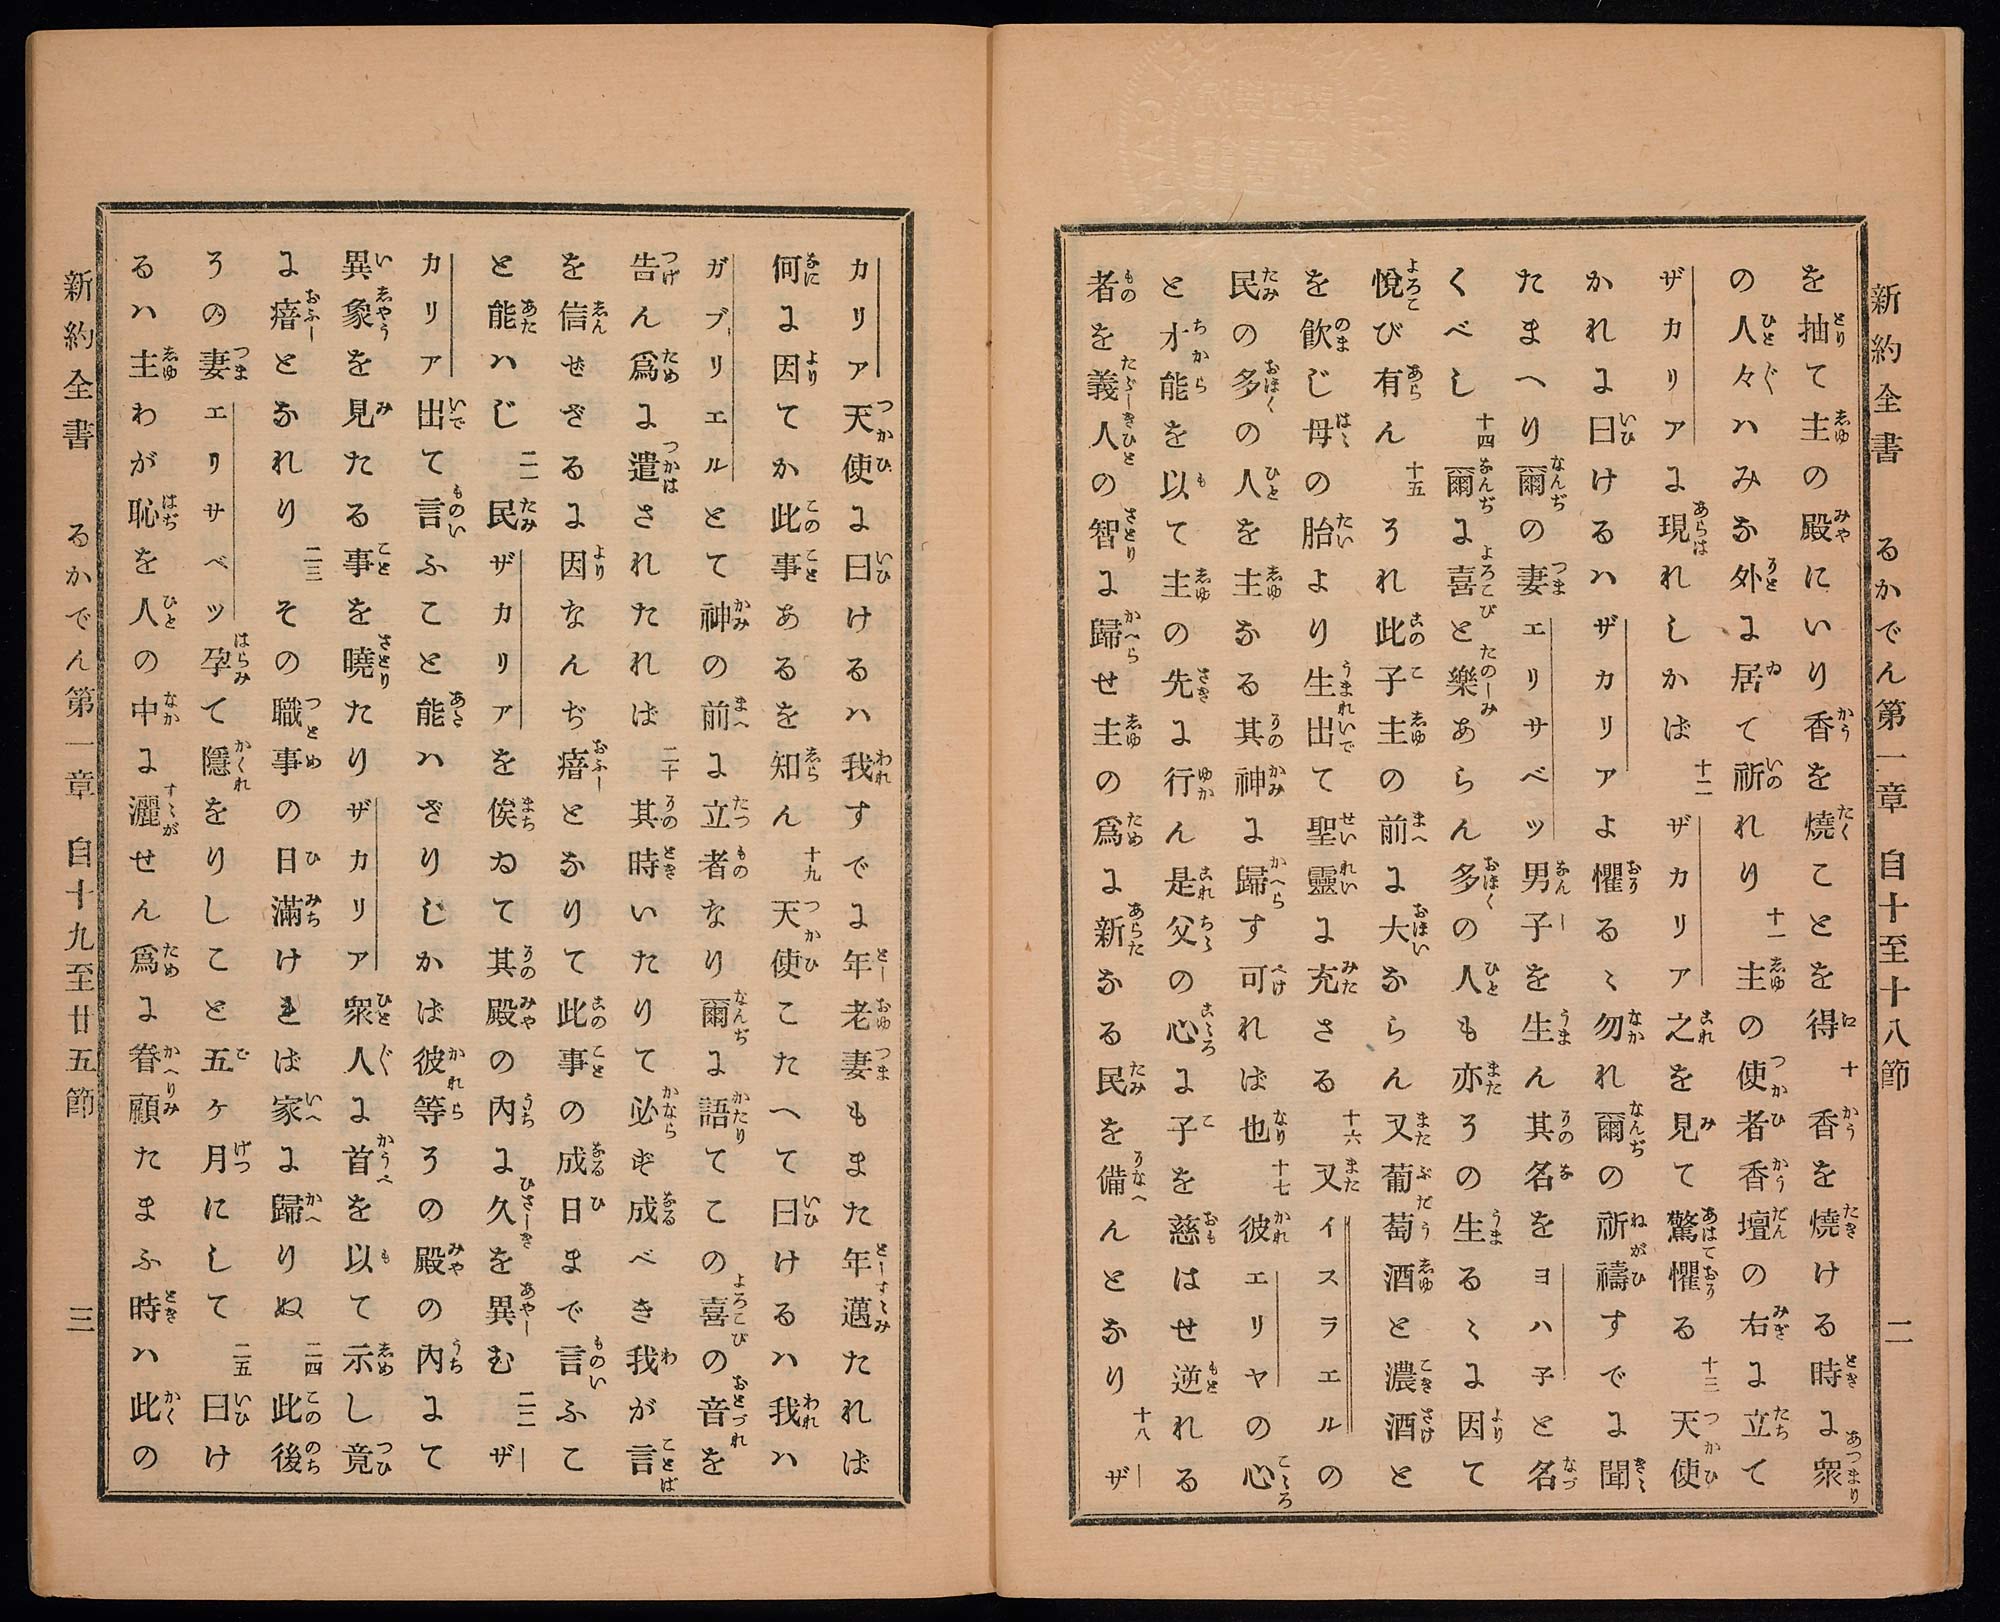 新約全書　るかでん第一章　自十至十八節　二
を抽て主の殿にいり香を燒ことを得 十 香を燒ける時に衆
の人々ハみな外に居て祈れり 十一 主の使者香壇の右に立て
ザカリアに現れしかば 十二 ザカリア之を見て驚懼る 十三 天使
かれに曰けるハザカリアよ懼るゝ勿れ爾の祈禱すでに聞
たまへり爾の妻エリサベツ男子を生ん其名をヨハ子と名
くべし 十四 爾に喜と樂あらん多の人も亦その生るゝに因て
悅び有ん 十五 それ此子主の前に大ならん又葡萄酒と濃酒と
を飮じ母の胎より生出て聖靈に充さる 十六 又イスラエルの
民の多の人を主なる其神に歸す可れば也 十七 彼エリヤの心
と才能を以て主の先に行ん是父の心に子を慈はせ逆れる
者を義人の智に歸せ主の爲に新なる民を備んとなり 十八 ザ
カリア天使に曰けるハ我すでに年老妻もまた年邁たれば
何に因てか此事あるを知ん 十九 天使こたへて曰けるハ我ハ
ガブリエルとて神の前に立者なり爾に語てこの喜の音を
告ん爲に遣されたれば 二十 其時いたりて必ず成べき我が言
を信ぜざるに因なんぢ瘖となりて此事の成日まで言ふこ
と能ハじ 二一 民ザカリアを俟ゐて其殿の內に久を異む 二二 ザ
カリア出て言ふこと能ハざりじかば彼等その殿の內にて
異象を見たる事を曉たりザカリア衆人に首を以て示し竟
に瘖となれり 二三 その職事の日滿ければ家に歸りぬ 二四 此後
その妻エリサベツ孕て隱をりしこと五ヶ月にして 二五 曰け
るハ主わが恥を人の中に灑せん爲に眷顧たまふ時ハ此の
新約全書　るかでん第一章　自十九至廿五節　三